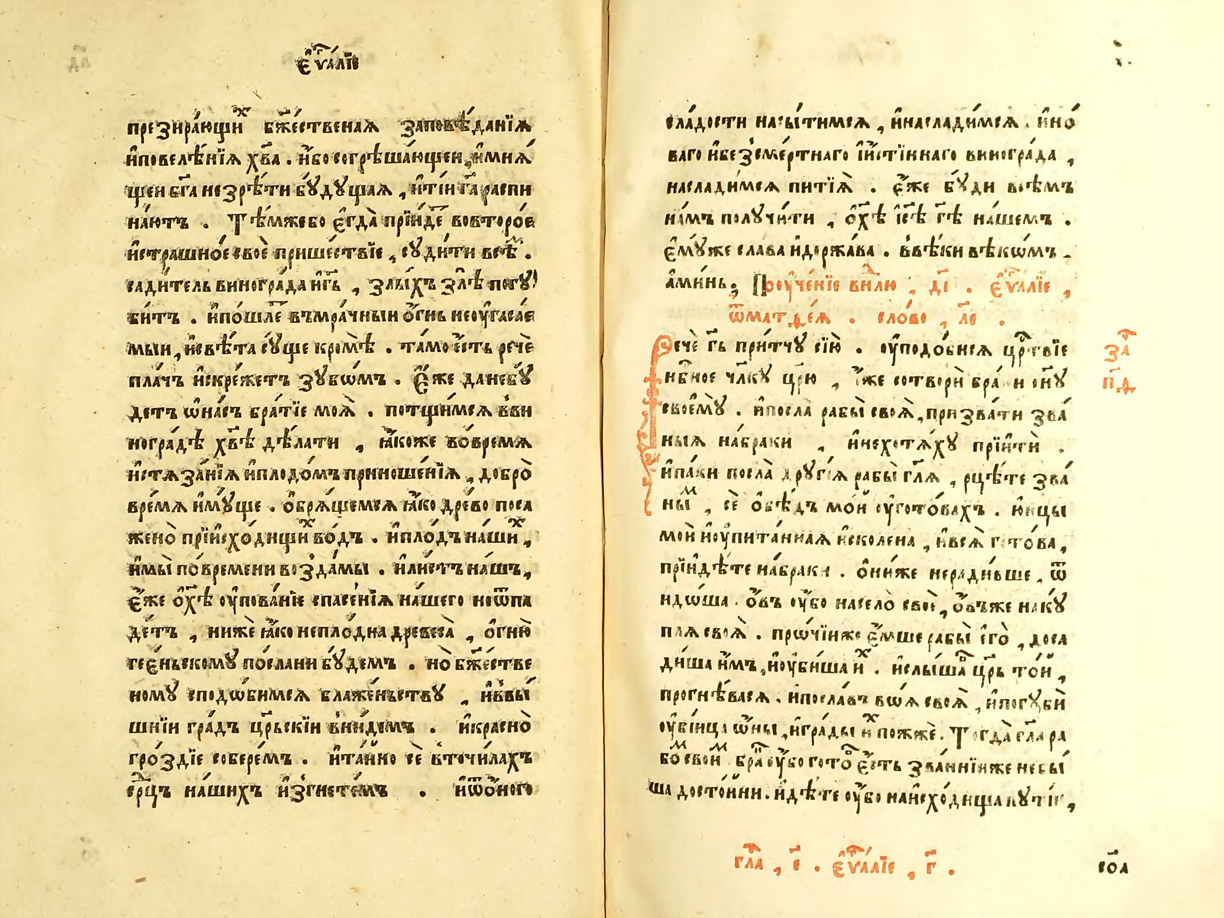 єѵ҃ⷢ҇алїе
презира́ющиⷯ бж҃е́ственаѧ заповѣ́данїѧ
и҆повелѣ́нїѧ хв҃а . и҆́бо согрѣша́ющеи, и҆мнѧ́
щеи бг҃а незрѣ́ти бꙋ́дꙋщаѧ , и҆тїи гⷭ҇а распи
на́ютъ . Тѣ́мжебо є҆гда̀ прїи́деⷮ вовторо́е
и҆стра́шное своѐ прише́ствїе , сꙋди́ти всѣⷨ .
сади́тель виногра́да и҆гь҃ , злы́хъ злѣ̀ погꙋ́
битъ . и҆по́шлеⷮ въмра́чныи о҆́гнь неоуга́сае
мыи , и҆свѣ́та сꙋ́ще кромѣ̀ . та́мо є҆́сть речѐ
пла́чь и҆скре́жетъ зꙋбѡ́мъ . є҆́же данебꙋ́
детъ ѡ҆на́съ бра́тїе моѧ̀ . потщи́мсѧ вви
ногра́дѣ хв҃ѣ дѣ́лати , ꙗ҆́коже вовре́мѧ
и҆стѧза́нїѧ и҆плодо́мъ приноше́нїѧ , добро̀
вре́мѧ и҆мꙋ́ще . ѻ҆брѧ́щемсѧ ꙗ҆́ко дре́во поса
жено̀ прїи҆схо́дищиⷯ во́дъ . и҆пло́дъ на́шиⷯ ,
и҆мы̀ повре́мени возда́мы . и҆ли́стъ на́шъ ,
є҆́же ѻ҆хⷭ҇ѣ оу҆пова́нїе спасе́нїѧ на́шего неѿпа
де́тъ , нижѐ ꙗ҆́ко непло́дна древеса̀ , о҆гню̀
гее́ньскомꙋ по́слани бꙋ́демъ . но̀ бж҃е́стве
номꙋ сподѡ́бимсѧ блаже́ньствꙋ , и҆ввы́
шнїи гра́дъ цр҃ьскїи вни́демъ . и҆кра́сно
гро́здїе собере́мъ . и҆та́йно сѐ вточи́лахъ
срⷣцъ на́шихъ и҆згнете́мъ . и҆ѿо́ного
сла́дости насы́тимсѧ , и҆наслади́мсѧ . и҆но́
ваго и҆безсме́ртнаго и҆́стіннаго виногра́да ,
наслади́мсѧ питїѧ̀ . є҆́же бꙋ́ди всѣ́мъ
на́мъ полꙋчи́ти , ѻ҆хⷭ҇ѣ і҆сⷭ҇ѣ гдⷭ҇ѣ на́шемъ .
є҆мꙋ́же сла́ва и҆держа́ва . ввѣ́ки вѣкѡ́мъ .
а҆ми́нь ; Поꙋче́нїе внⷣлю , дı҃ . є҆ѵⷢ҇алїе ,
ѿматѳе́ѧ . сло́во , ле҃ .
Речѐ гдⷭ҇ь при́тчꙋ сїю̀ . оу҆подо́бисѧ црⷭ҇твїе
нбⷭ҇ное чл҃кꙋ цр҃ю , и҆́же сотворѝ бра́ки сн҃ꙋ
своемꙋ̀ . и҆посла̀ рабы̀ своѧ̀, призва́ти зва́
ныѧ на́браки , и҆нехотѧ́хꙋ прїитѝ .
и҆па́ки посла̀ дрꙋгі́ѧ рабы̀ гл҃ѧ , рцѣ́те зва́
ныⷨ , сѐ о҆бѣ́дъ мо́и оу҆гото́вахъ . ю҆нцы̀
моѝ и҆оу҆пита́ннаѧ и҆сколена , и҆всѧ̀ гото́ва ,
прїидѣ́те на́браки . ѻ҆ни́же нера́дивше , ѿ
идо́ша . о҆́въ оу҆́бо насело̀ своѐ, о҆́въже накꙋ́
плѧ своѧ̀ . про́чїиже є҆́мше рабы̀ є҆го̀ , доса
ди́ша и҆̀мъ, и҆оу҆би́ша иⷯ . и҆слы́шавъ цр҃ь то́и ,
прогнѣ́васѧ . и҆посла́въ во́ѧ своѧ̀ , и҆погꙋбѝ
оу҆бі́ица ѡ҆́ны , и҆гра́ды иⷯ пожжѐ . Тогда̀ гл҃а ра
бо́ⷨ свои́ⷨ . бра́ⷦ оу҆́бо гото́ⷡ є҆́сть зва́ннїиже небы́
ша досто́йни . и҆дѣ́те оу҆́бо наи҆схо́дища пꙋ́тїи ,
заⷱ҇
п҃д
глаⷡ , є҃ . є҆ѵⷢ҇алїе , г҃ .
со҃а